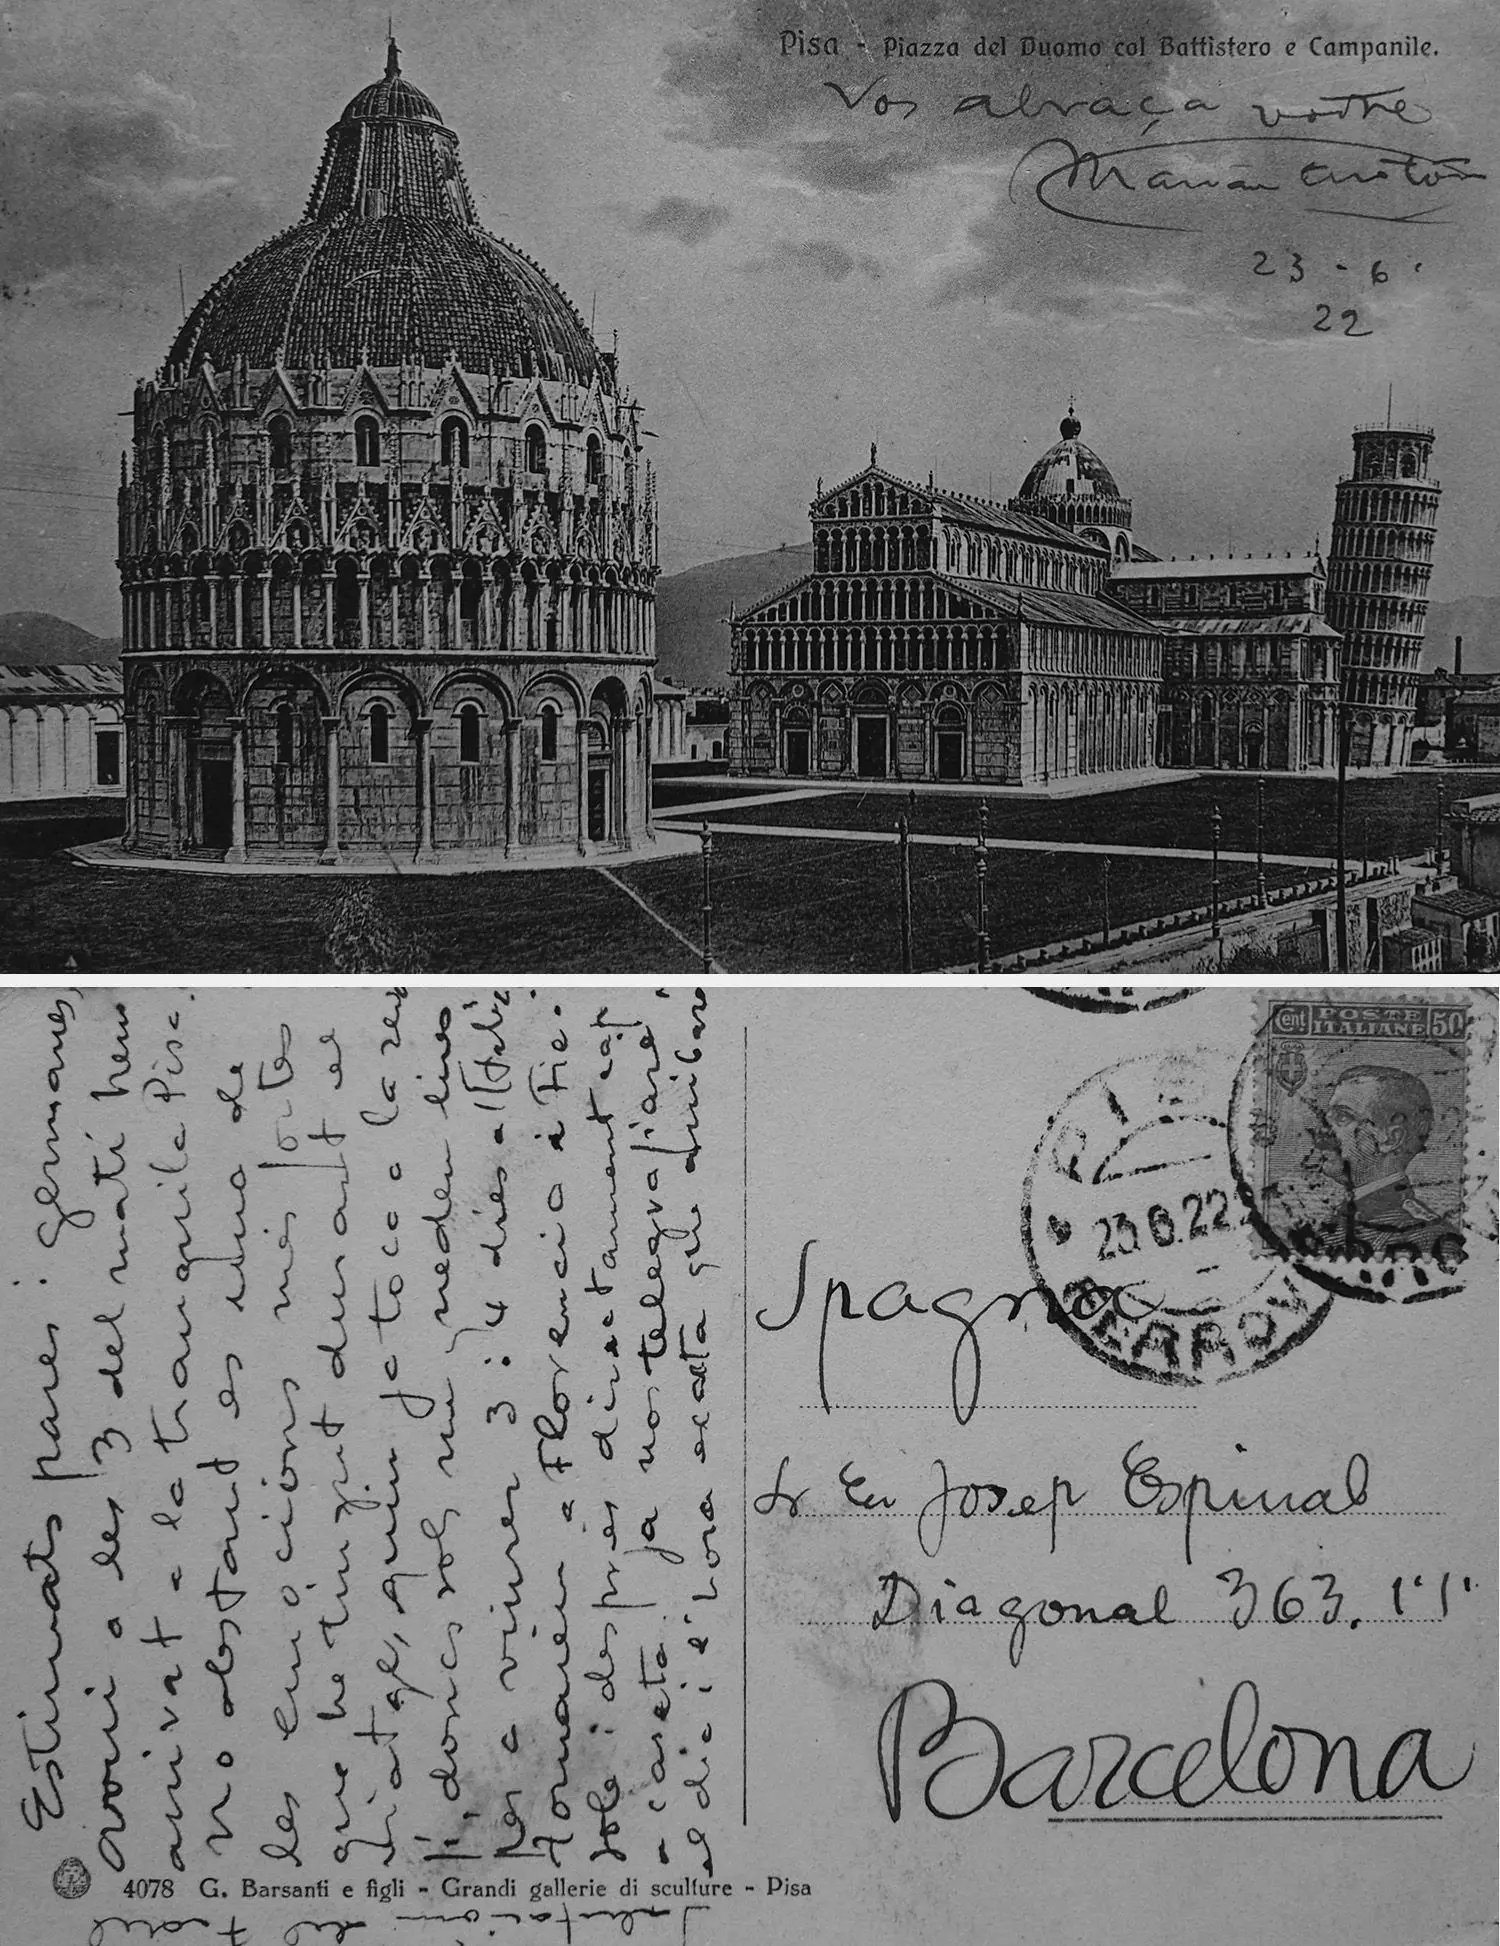 Pisa - Piazza del Duomo col Battistero e Campanile.
Vos abraça vostre
Marian
23 - 6 -
22
Estimats pares i germanes,
avui a les 3 del matí hem
arrivat a la tranquila Pisa.
No obstant es una de
les emocions més fortes
que he tingut durant el
viatge, quin ja toca a la seva
fi, doncs sols me queden lines
3 i 4 dies a
tornarem a Florencia a Fie-
sole i despres directament cap
a caseta. ja vos telegrafiaré
el dia i l'hora exacta que arribaré
4078 G. Barsanti e figli - Grandi gallerie di sculture - Pisa
del
Cent POSTE ITALIANE 50
PISA
23.6.22
FERROVIA
Spagna
Sr En Josep Espinal
Diagonal 363. 1º 1ª
Barcelona